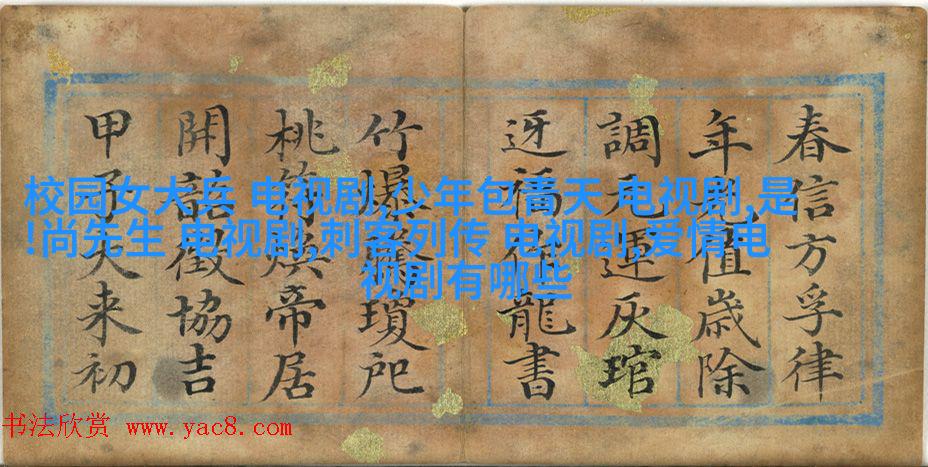 春信方孚律
年值歲除
調元運灰琯
迓福龍書
竹爆瓊戺
桃符煥帝居
開喆徵協吉
甲子天来初
校园女大兵 电视剧,少年包青天 电视剧,是
!尚先生 电视剧,刺客列传 电视剧,爱情电
视剧有哪些
书法欣赏 www.yac8.com